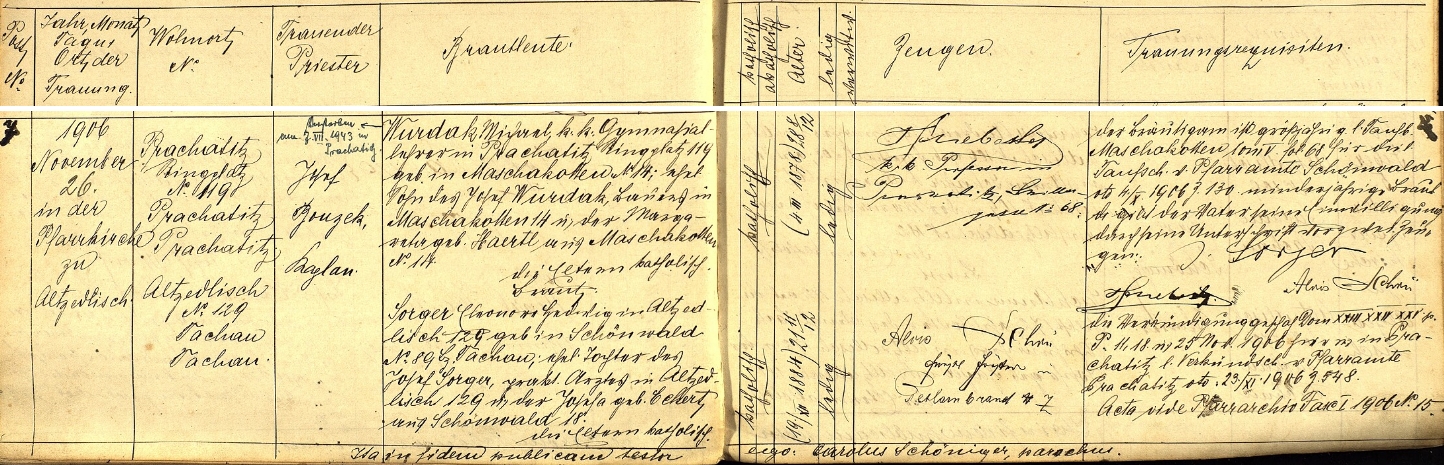 Post
No
Jahr, Monat
Tag u.
Ort der
Trauung.
Wohnort
No.
Trauender
Priester
Brautleute.
katholisch
akatholisch
Alter
ledig
verwittwet
Zeugen.
Trauungsrequisiten.
1906
November
26.
in der
Pfarrkirche
zu
Altzedlisch
Prachatitz
Ringplatz
No. 119
Prachatitz
Prachatitz
Altzedlisch
No. 129
Tachau
Tachau.
Gestorben
am 7.VII.1943 in
Prachatitz
Josef
Bouzek,
Kaplan.
Wurdak Michael, k.k. Gymnasial-
lehrer in Prachatitz Ringplatz 119
geb. in Maschakotten No 14; ehel.
Sohn des Josef Wurdak, Bauers in
Maschakotten 14 u. der Marga-
reta geb. Haertl aus Maschakotten
No. 14.
die Eltern katholisch.
Braut
Sorger Eleonora Hedwig in Altzed-
lisch 129 geb. in Schönwald
No. 89, Tachau; ehel. Tochter des
Josef Sorger, prakt. Arztes in Altzed-
lisch 129 u. der Josefa geb. Eckert
aus Schönwald 18.
die Eltern katholisch.
Ita in fidem publicam testor
katholisch
ledig
katholisch
ledig
k.k. Professor in
Alois Schön
der Bräutigam ist großjährig l. Taufb.
Maschakotten tom V.
Taufsch. v. Pfarramte Schönwald
1906 z. 130 minderjährige Braut
der Vater seine Einwilligung
durch seine Unterschrift vor zwei Zeu-
gen:
Sorger
Alois Schön
die Verkündigung geschah Dom XXIV XXV XXVI p.
P. 11. 18. u. 25 Nov. 1906 hier u. in Pra-
chatitz l. Verkündsch. v. Pfarramte
Prachatitz dto. 23/XI 1906 z. 548.
Acta vide Pfarrarchiv Fasc I 1906 No. 15.
ergo: Carolus Schöniger, parochus.